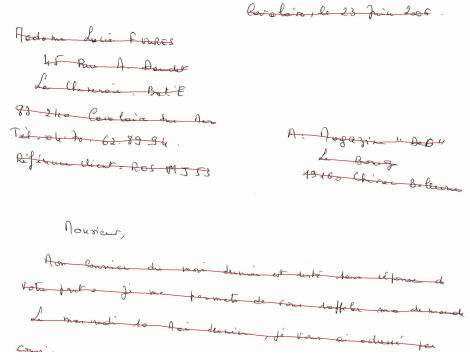 Cavalaire, le 23 Juin 2006.
Madame Lucie FAVRES
45 Rue A. Daudet
La Chesnaie. Bat E
83 240 Cavalaire sur Mer
Tél. 04 70 62.89.94.
Référence client. ROS MJ53
A. Magazine "DeD"
Le Bourg
19160 Chirac Bellevue
Monsieur,
Mon courrier du mois dernier est resté sans réponse de
votre part et je me permets de vous rappeler ma demande
Le mercredi 10 Mai dernier, je vous ai adressé par